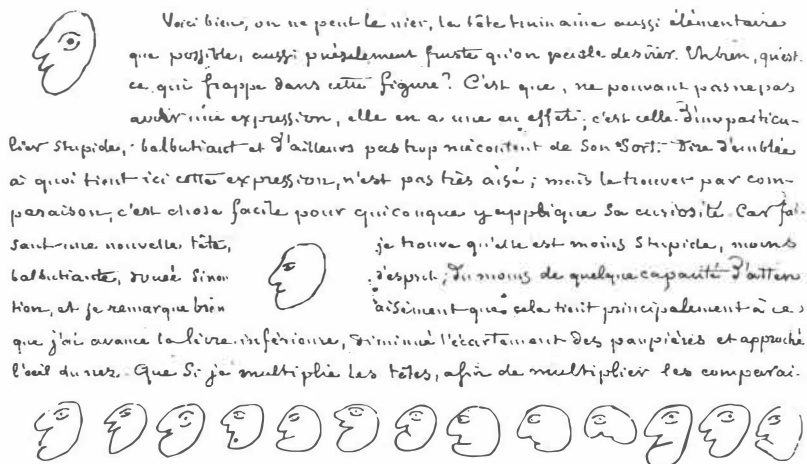 Voici bien, on ne peut le nier, la tête humaine aussi élémentaire
que possible, aussi puérilement fruste qu'on puisse desirer. Eh bien, qu'est-
ce qui frappe dans cette figure? C'est que, ne pouvant pas ne pas
avoir une expression, elle en a une en effet; c'est celle d'un particu-
lier stupide, balbutiant et d'ailleurs pas trop mécontent de son sort. Dire d'emblée
à quoi tient ici cette expression, n'est pas très aisé; mais le trouver par com-
paraison, c'est chose facile pour quiconque y applique sa curiosité. Car fai-
sant une nouvelle tête, je trouve qu'elle est moins stupide, moins
balbutiante, douée sinon d'esprit, du moins de quelque capacité d'atten
tion, et je remarque bien aisément que cela tient principalement à ce
que j'ai avancé la lèvre inférieure, diminué l'écartement des paupières et approché
l'oeil du nez. Que si je multiplie les têtes, afin de multiplier les comparai-